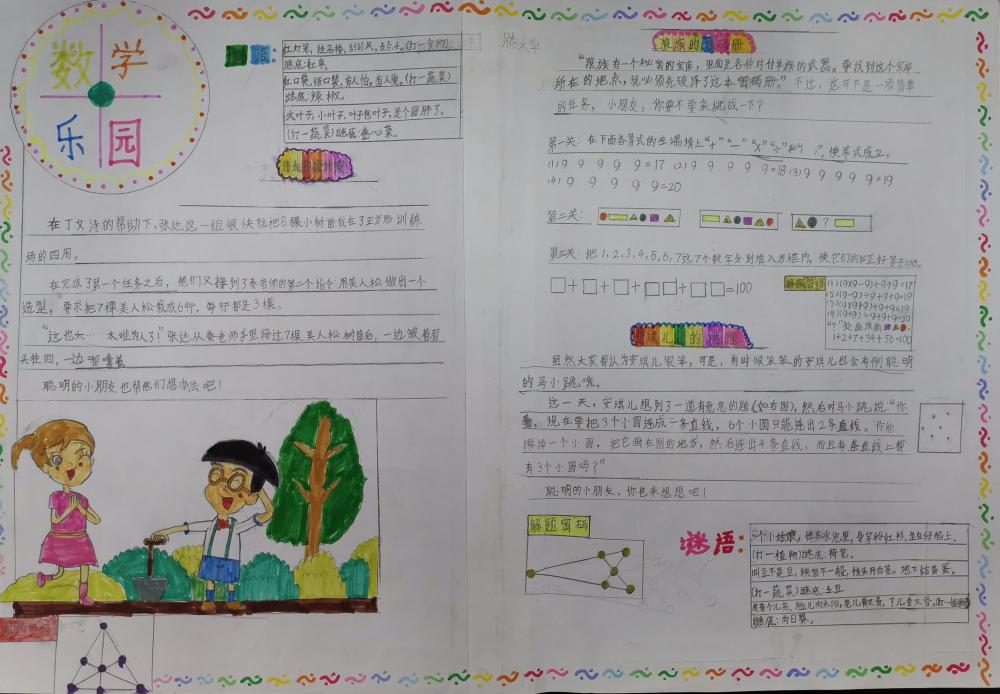 数学
乐园
谜语:
红灯笼,挂高楼,
谜底:红枣。
红口袋,绿口袋,有人怕,有人爱。(打一蔬菜)
谜底:辣椒。
大叶子,小叶子,叶子包叶子,是个圆胖子。
(打一蔬菜)谜底:卷心菜。
在丁文涛的帮助下,张达这一组很快就把8棵小树苗栽在了正方形训练
场的四周。
在完成了第一个任务之后,他们又接到了秦老师的第二个指令:用美人松做出一个
造型,要求把7棵美人松栽成6行,每行都是3棵。
“这也太……太难为人了!”张达从秦老师手里接过7棵美人松树苗后,一边皱着眉
头往回,一边嘟囔着
聪明的小朋友也帮他们想办法吧!
狼族的
“狼族有一个秘密的宝库,里面是各种对付羊族的武器。要找到这个宝库
所在的地点,就必须先破译了这本密码册。”不过,这可不是一项简单
的任务,小朋友,你要不要来挑战一下?
第一关:在下面各等式的左端填上“+”“-”“×”“÷”和“( )”,使等式成立。
(1) 9 9 9 9 9=17 (2) 9 9 9 9 9=18 (3) 9 9 9 9 9=19
(4) 9 9 9 9 9=20
第二关:
?
第三关:把1、2、3、4、5、6、7这7个数字分别填入方框内,使它们的和正好等于100。
□+□+□+□□+□□=100
1+2+7+34+56=100
虽然大家都认为安琪儿很笨,可是,有时候笨笨的安琪儿也会有例聪明
的马小跳哦。
这一天,安琪儿想到了一道有意思的题(如右图),然后对马小跳说:“你
看,现在要把3个小圆连成一条直线,6个小圆只能连出2条直线。你能
擦掉一个小圆,把它画在别的地方,然后连出4条直线,而且每条直线上都
有3个小圆吗?”
聪明的小朋友,你也来想想吧!
解题密码
谜语:
一个小姑娘,住在水池里,身穿粉红衫,坐在绿船上。
(打一植物)谜底:荷花。
叫豆不是豆,
(打一蔬菜)谜底:土豆
谜底:向日葵。